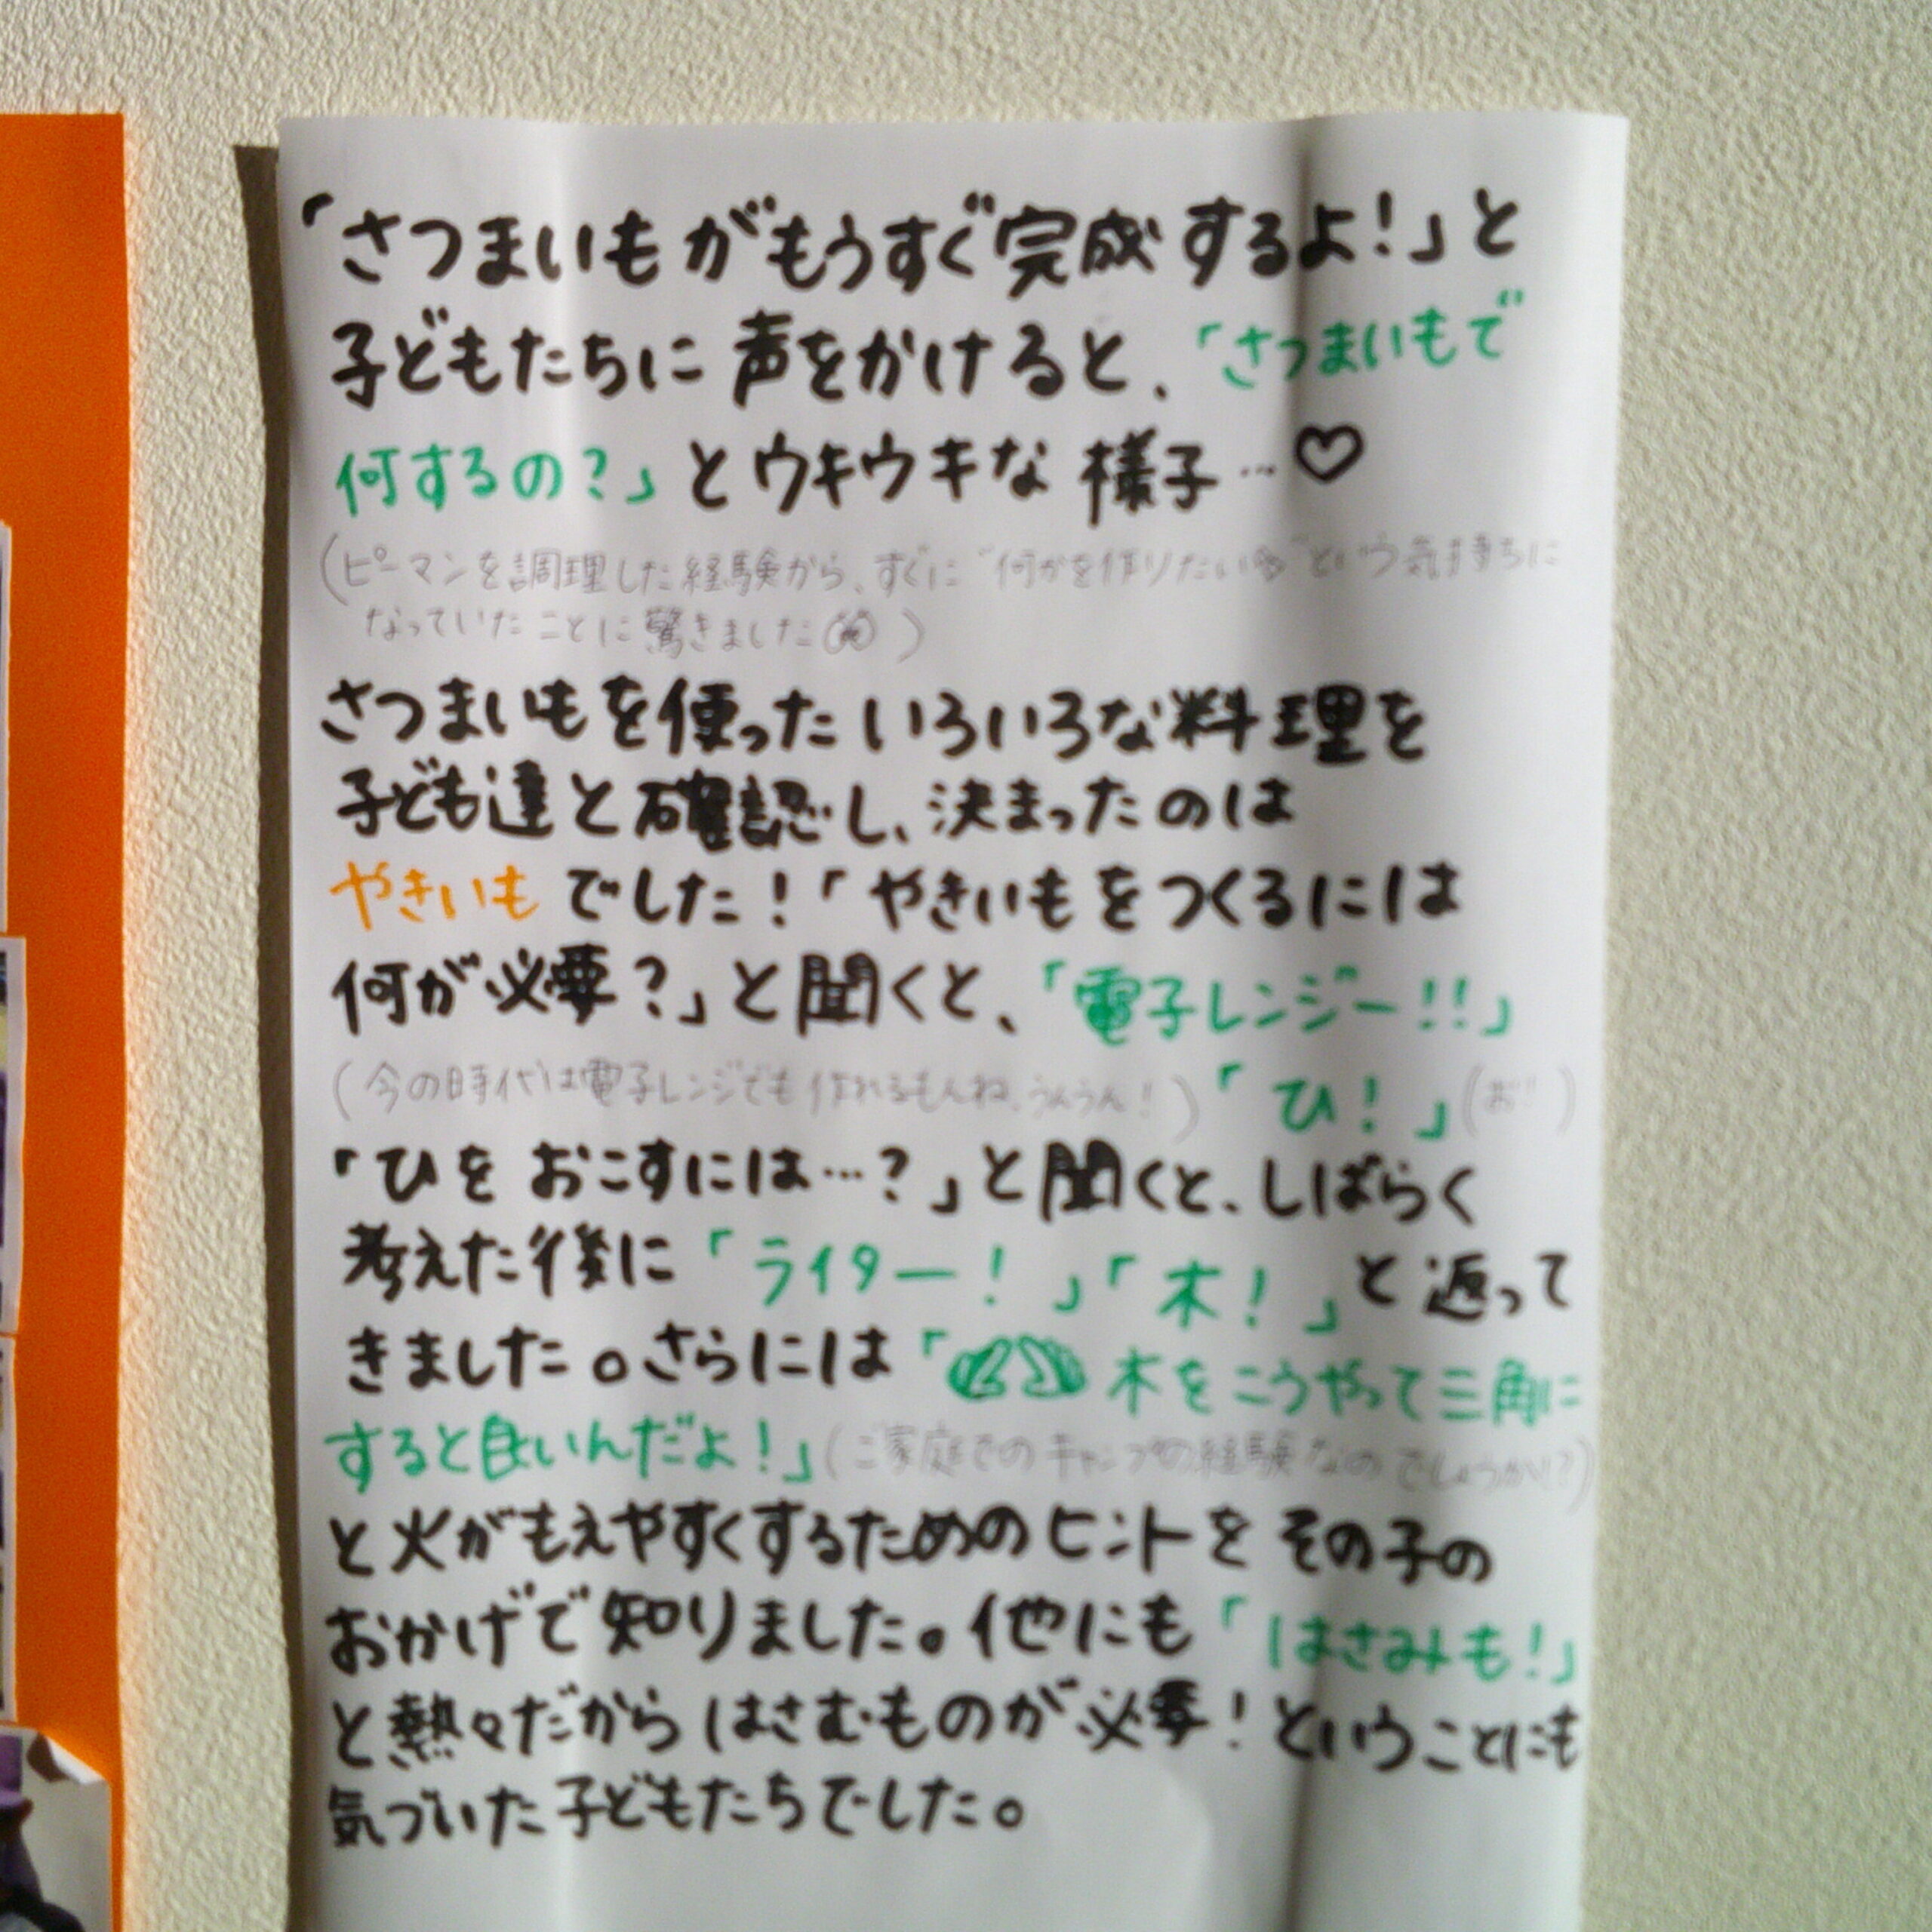 「さつまいもがもうすぐ完成するよ!」と
子どもたちに声をかけると、「さつまいもで
何するの?」とウキウキな様子…♡
(ピーマンを調理した経験から、すぐに“何かを作りたい”という気持ちに
なっていたことに驚きました)
さつまいもを使ったいろいろな料理を
子ども達と確認し、決まったのは
やきいもでした!「やきいもをつくるには
何が必要?」と聞くと、「電子レンジー!!」
(今の時代は電子レンジでも作れるもんね、うんうん!)「ひ!」(お!)
「ひをおこすには…?」と聞くと、しばらく
考えた後に「ライター!」「木!」と返って
きました。さらには「木をこうやって三角に
すると良いんだよ!」(ご家庭でのキャンプの経験なのでしょうか!?)
と火がもえやすくするためのヒントをその子の
おかげで知りました。他にも「はさみも!」
と熱々だからはさむものが必要!ということにも
気づいた子どもたちでした。